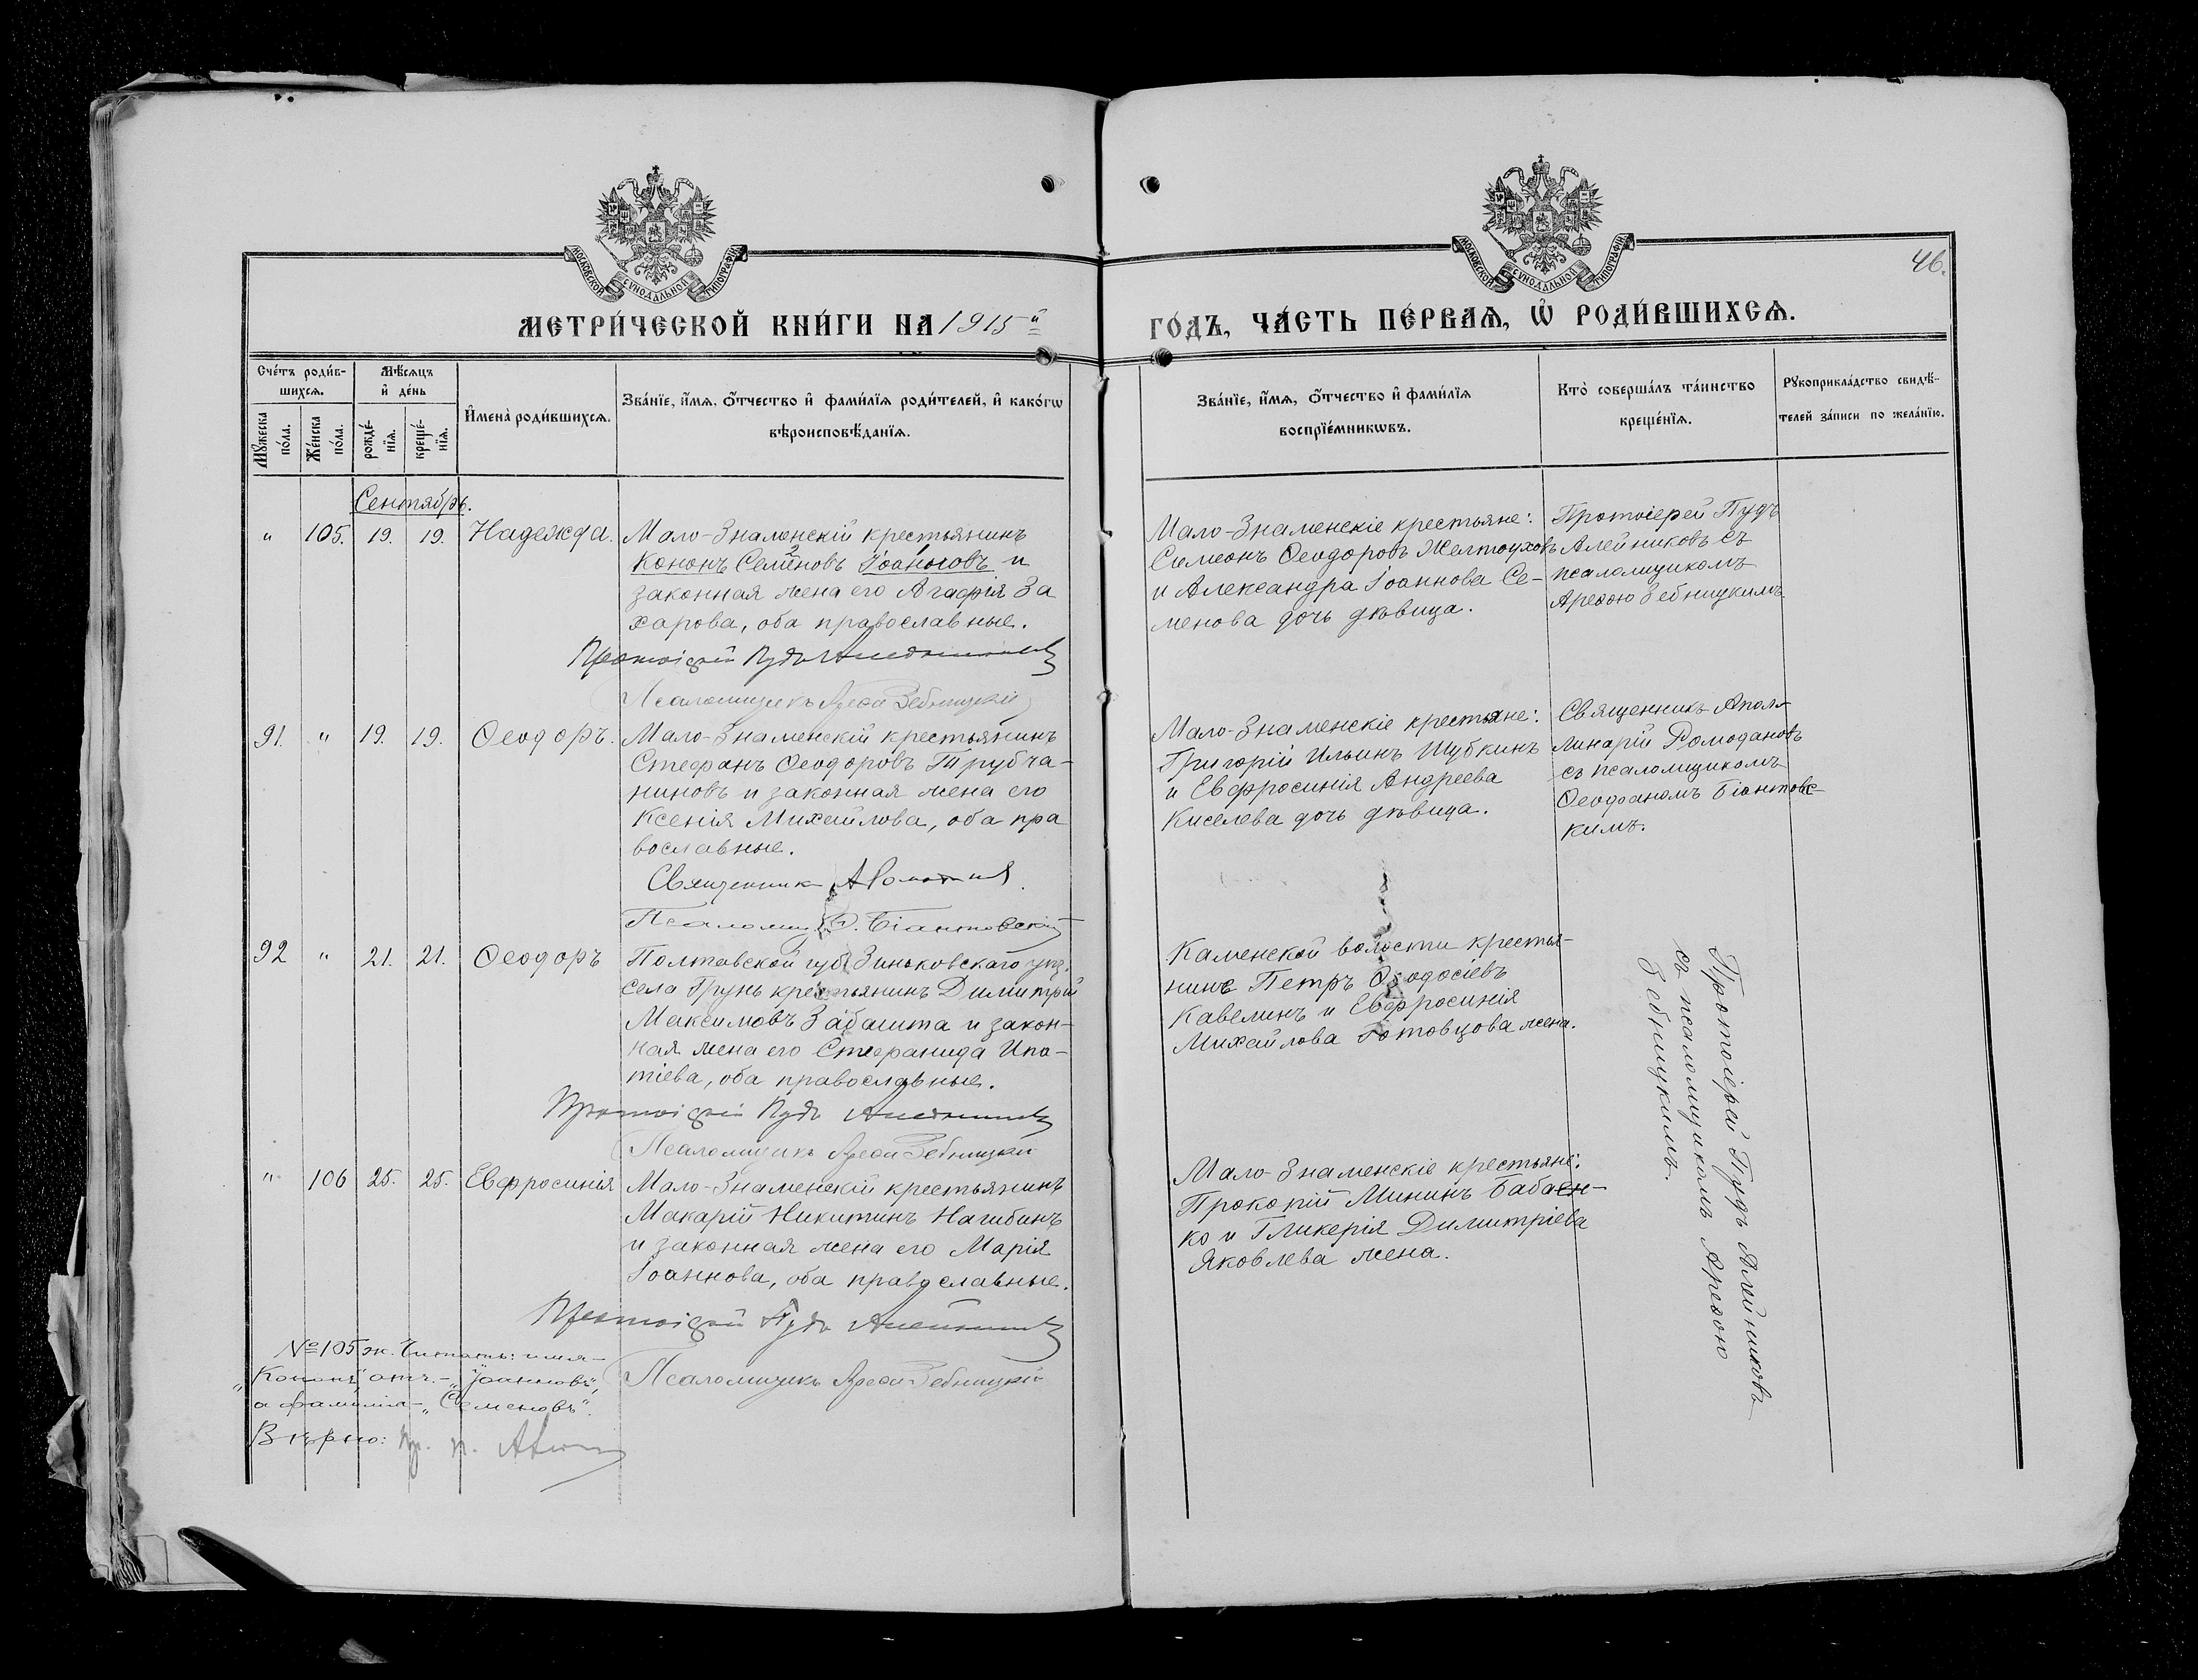 46.
МОСКОВСКОЙ СѴНОДАЛЬНОЙ ТИПОГРАФІИ
МОСКОВСКОЙ СѴНОДАЛЬНОЙ ТИПОГРАФІИ
МЕТРИ́ЧЕСКОЙ КНИ́ГИ НА 1915й
ГО́ДЪ, ЧА́СТЬ ПЕ́РВАѦ, Ѡ҆ РОДИ́ВШИХСѦ.
Сче́тъ роди́в-
шихсѧ.
Мꙋ́жеска по́ла.
Же́нска по́ла.
Мѣ́сѧцъ
и҆ де́нь
рожде́-нїѧ.
креще́-нїѧ.
И҆мена̀ роди́вшихсѧ.
Зва́нїе, и҆́мѧ, ѻ҆́тчество и҆ фами́лїѧ роди́телей, и҆ како́гѡ
вѣроисповѣ́данїѧ.
Зва́нїе, и҆́мѧ, ѻ҆́тчество и҆ фами́лїѧ
воспрїе́мникѡвъ.
Кто̀ соверша́лъ та́инство
креще́нїѧ.
Рꙋкоприкла́дство свидѣ́-
телей за́писи по жела́нїю.
Сентябрь.
" 105. 19. 19. Надежда.
Мало-Знаменскій крестьянинъ
Кононъ Семеновъ Іоанновъ и
законная жена его Агафія За
харова, оба православные.
Протоіерей Пудъ Алейниковъ
Псаломщикъ Ареѳа Зебницкій
Мало-Знаменскіе крестьяне:
Симеонъ Ѳеодоровъ Желтоуховъ
и Александра Іоаннова Се-
менова дочь дѣвица.
Протоіерей Пудъ
Алейниковъ съ
псаломщикомъ
Ареѳою Зебницкимъ
91. " 19. 19. Ѳеодоръ.
Мало-Знаменскій крестьянинъ
Стефанъ Ѳеодоровъ Трубча-
ниновъ и законная жена его
Ксенія Михайлова, оба пра
вославные.
Священникъ А Ромодановъ
Псаломщ Ѳ. Біантовскій
Мало-Знаменскіе крестьяне:
Григорій Ильинъ Шубкинъ
и Евфросинія Андреева
Киселева дочь дѣвица.
Священникъ Апол-
линарій Ромодановъ
съ псаломщикомъ
Ѳеофаномъ Біантовс-
кимъ.
92 " 21. 21. Ѳеодоръ
Полтавской губ. Зиньковскаго уѣз.
села Грунь крестьянинъ Димитрій
Максимовъ Забашта и закон-
ная жена его Стефанида Ипа-
тіева, оба православные.
Протоіерей Пудъ Алейниковъ
Псаломщикъ Ареѳа Зебницкій
Каменской волости крестья-
нинъ Петръ Ѳеодосіевъ
Кавелинъ и Евфросинія
Михайлова Готовцова жена.
Протоіерей Пудъ Алейниковъ
съ псаломщикомъ Ареѳою
Зебницкимъ.
" 106 25. 25. Евфросинія
Мало-Знаменскій крестьянинъ
Макарій Никитинъ Нагибинъ
и законная жена его Марія
Іоаннова, оба православные.
Протоіерей Пудъ Алейниковъ
Псаломщикъ Ареѳа Зебницкій
Мало-Знаменскіе крестьяне:
Прокопій Мининъ Бабаен-
ко и Гликерія Димитріева
Яковлева жена.
№ 105 ж. Читать: имя-
„Кононъ", отч.-„Іоанновъ",
а фамилія-„Семеновъ".
Вѣрно: